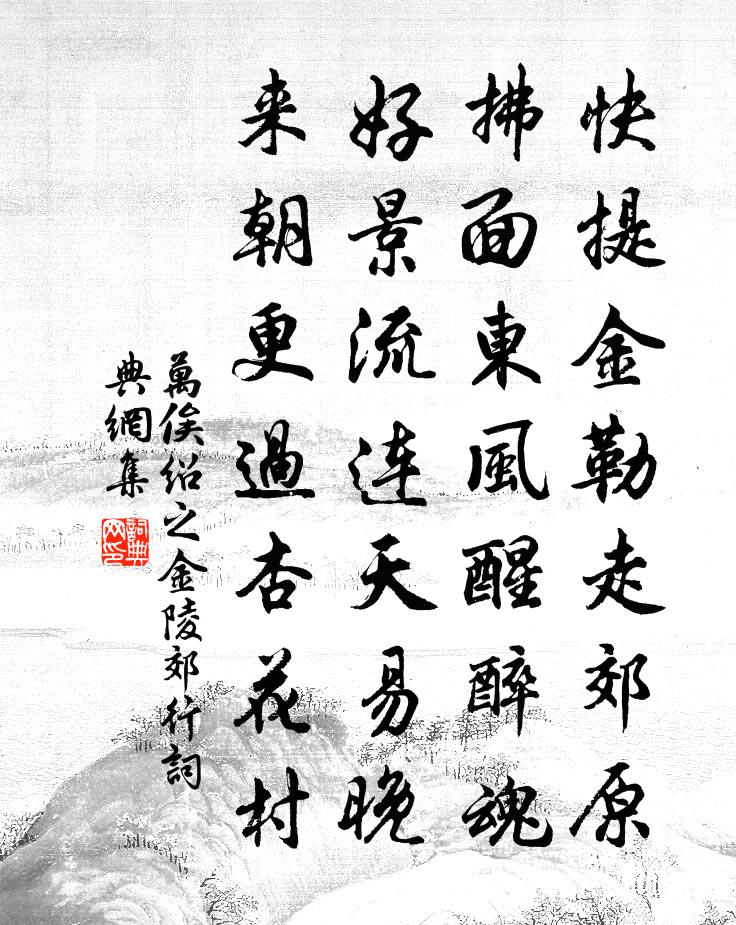 快提金勒走郊原
拂面東風醒醉魂
好景流连天易晚
来朝更過杏花村
萬俟绍之金陵郊行詞
典網集
詞典
网印